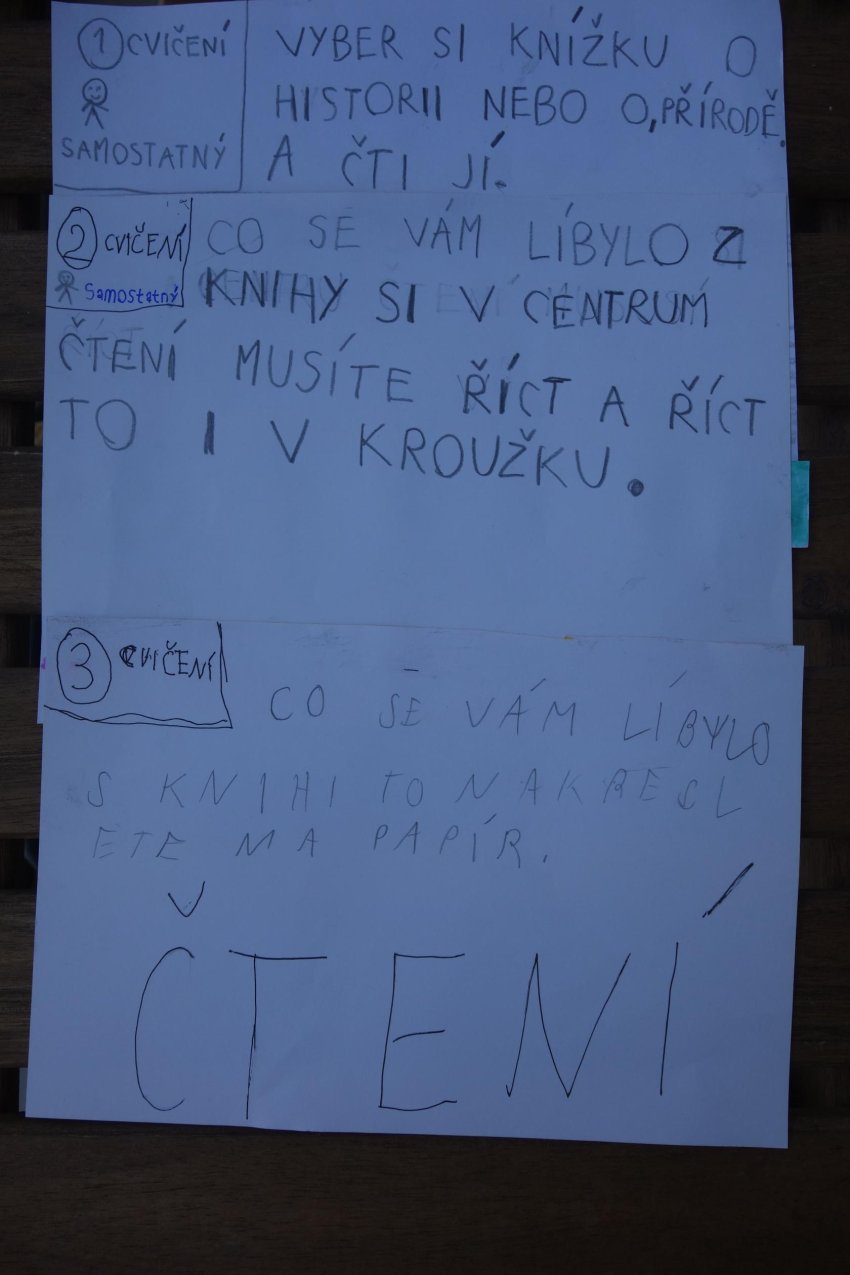 1 CVIČENÍ
SAMOSTATNÝ
VYBER SI KNÍŽKU O
HISTORII NEBO O, PŘÍRODĚ.
A ČTI JÍ.
2 CVIČENÍ
Samostatný
CO SE VÁM LÍBYLO Z
KNIHY SI V CENTRUM
ČTENÍ MUSÍTE ŘÍCT A ŘÍCT
TO I V KROUŽKU.
3 CVIČENÍ
CO SE VÁM LÍBYLO
S KNIHI TO NAKRESL
ETE MA PAPÍR.
ČTENÍ